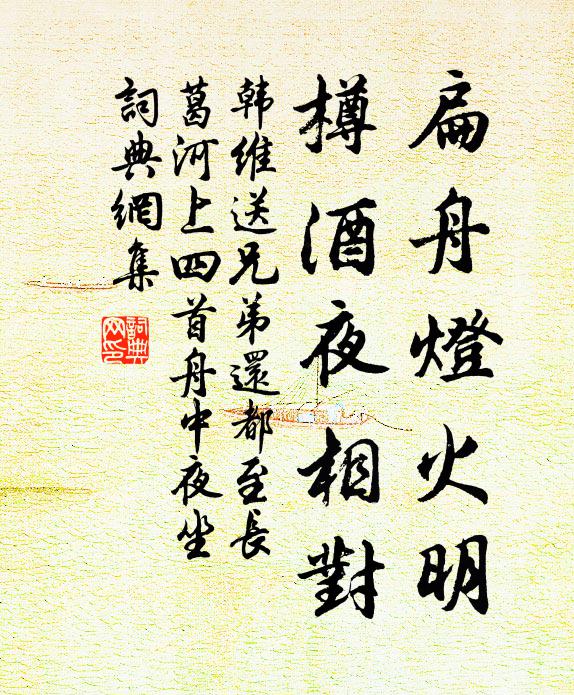 扁舟燈火明
樽酒夜相對
韩維送兄弟還都至長
葛河上四首舟中夜坐
詞典網集
詞典
网印